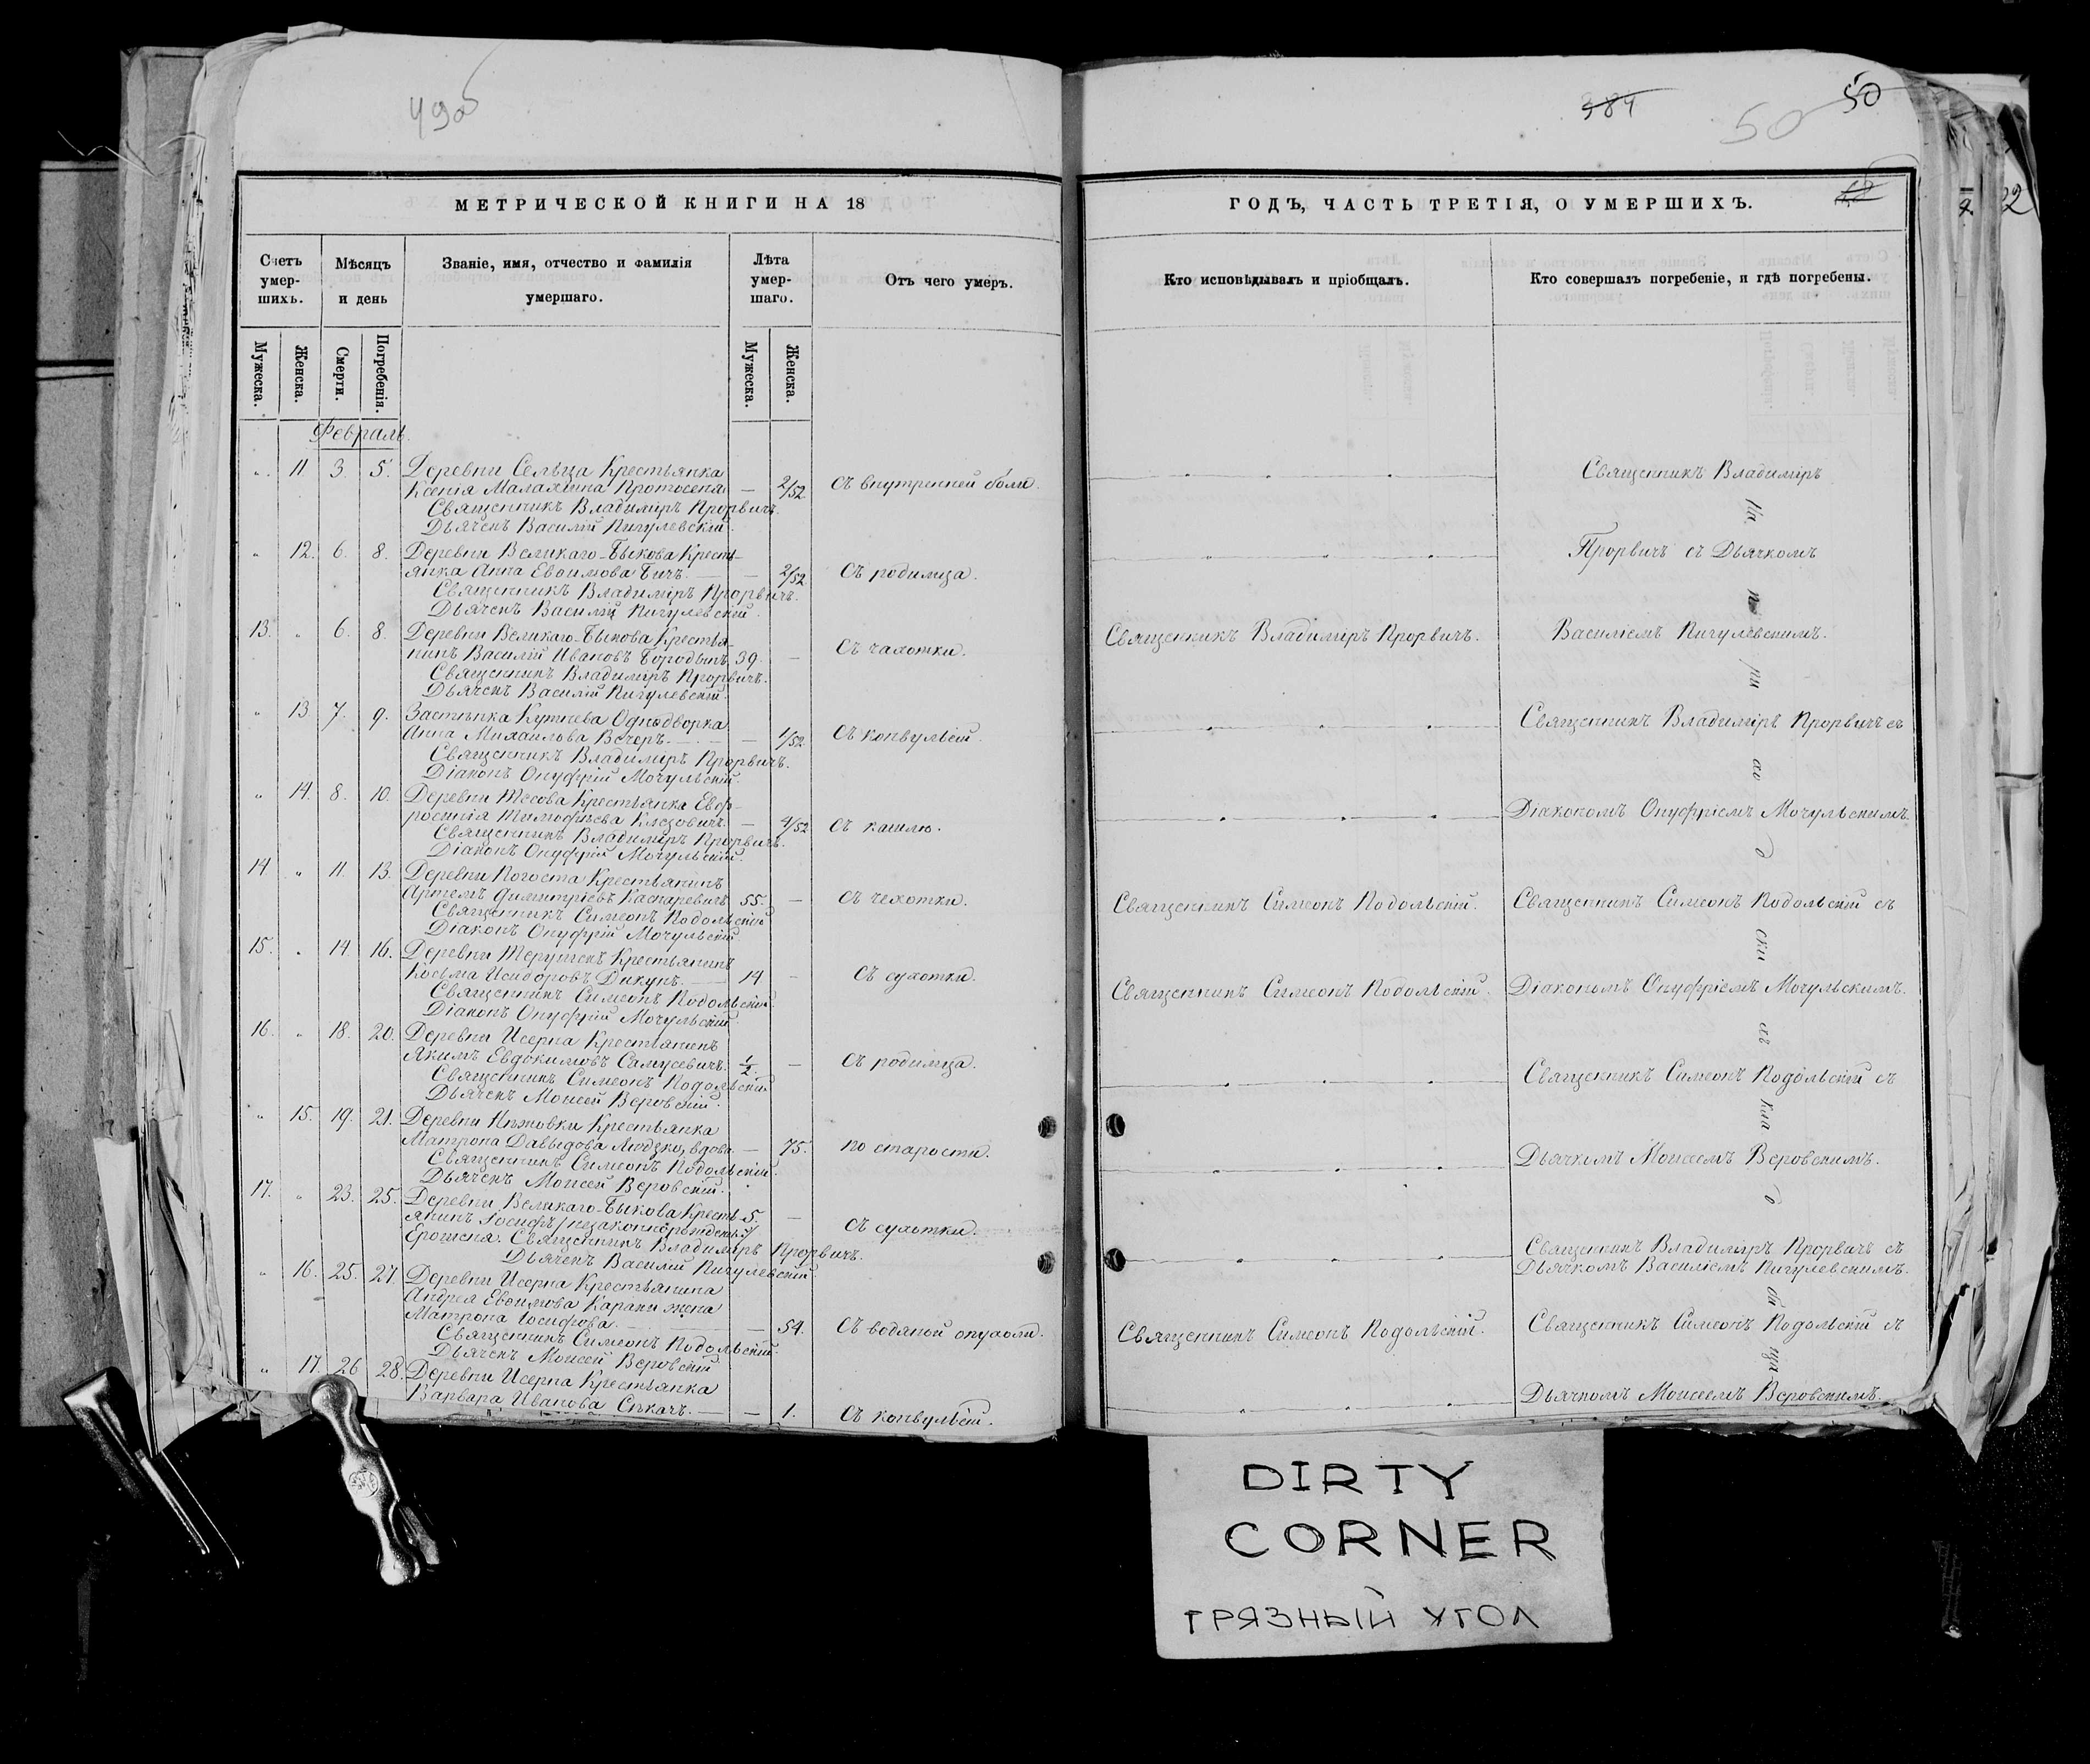 490б
384
50
50
МЕТРИЧЕСКОЙ КНИГИ НА 18
ГОДЪ, ЧАСТЬ ТРЕТІЯ, О УМЕРШИХЪ.
Счетъ умершихъ.
Мѣсяцъ и день
Званіе, имя, отчество и фамилія умершаго.
Лѣта умершаго.
Отъ чего умеръ.
Кто исповѣдывалъ и пріобщалъ.
Кто совершалъ погребеніе, и гдѣ погребены.
Мужеска.
Женска.
Смерти.
Погребенія.
Мужеска.
Женска.
Февраль.
„ 11. 3 5. Деревни Сельца Крестьянка
Ксенія Малахіина Протосеня — 2/52 Съ внутренней боли.
Священникъ Владиміръ Прорвичъ.
Дьячекъ Василій Пигулевскій.
„ 12. 6. 8. Деревни Великаго-Быкова Кресть-
янка Анна Евѳимова Бичъ. — 2/52 Съ родимца.
Священникъ Владиміръ Прорвичъ.
Дьячекъ Василій Пигулевскій.
13. „ 6. 8. Деревни Великаго-Быкова Крестья-
нинъ Василій Ивановъ Бородынъ 39. — Съ чахотки.
Священникъ Владиміръ Прорвичъ.
Дьячекъ Василій Пигулевскій.
„ 13 7. 9. Застѣнка Кутнева Однодворка
Анна Михаилова Вечеръ. — 1/52 Съ конвульсій.
Священникъ Владиміръ Прорвичъ.
Діаконъ Онуфрій Мочульскій.
„ 14. 8. 10. Деревни Тесова Крестьянка Евф-
росинія Тимофѣева Клезовичъ. — 4/52 Съ кашлю.
Священникъ Владиміръ Прорвичъ.
Діаконъ Онуфрій Мочульскій.
14 „ 11. 13. Деревни Погоста Крестьянинъ
Артемъ Димитріевъ Каспаревичъ 55. — Съ чехотки.
Священникъ Симеонъ Подольскій
Діаконъ Онуфрій Мочульскій
15. „ 14 16. Деревни Терушекъ Крестьянинъ
Косьма Исидоровъ Дикунъ. 14 — Съ сухотки.
Священникъ Симеонъ Подольскій.
Діаконъ Онуфрій Мочульскій
16. „ 18. 20. Деревни Исерна Крестьянинъ
Якимъ Евдокимовъ Самусевичъ. 1/2. — Съ родимца.
Священникъ Симеонъ Подольскій
Дьячекъ Моисей Вѣровскій.
„ 15. 19. 21. Деревни Нѣжовки Крестьянка
Матрона Давыдова Людзко, вдова. — 75. По старости.
Священникъ Симеонъ Подольскій.
Дьячекъ Моисей Вѣровскій.
17. „ 23. 25. Деревни Великаго-Быкова Кресть- 5. —
янинъ Іосифъ /незаконнорожденый/ Съ сухотки.
Ерошеня. Священникъ Владиміръ Прорвичъ.
Дьячекъ Василій Пигулевскій.
„ 16. 25. 27. Деревни Исерна Крестьянина
Андрея Евѳимова Карани жена
Матрона Іосифова. — 54. Съ водяной опухоли.
Священникъ Симеонъ Подольскій.
Дьячекъ Моисей Вѣровскій
„ 17. 26 28. Деревни Исерна Крестьянка
Варвара Иванова Сѣкачъ. — 1. Съ конвульсій.
Священникъ Владиміръ Прорвичъ.
Священникъ Симеонъ Подольскій.
Священникъ Симеонъ Подольскій.
Священникъ Симеонъ Подольскій.
Священникъ Владиміръ
Прорвичъ съ Дьячкомъ
Василіемъ Пигулевскимъ.
Священникъ Владиміръ Прорвичъ съ
Діакономъ Онуфріемъ Мочульскимъ.
Священникъ Симеонъ Подольскій съ
Діакономъ Онуфріемъ Мочульскимъ.
Священникъ Симеонъ Подольскій съ
Дьячкомъ Моисеемъ Вѣровскимъ.
Священникъ Владиміръ Прорвичъ съ
Дьячкомъ Василіемъ Пигулевскимъ.
Священникъ Симеонъ Подольскій съ
Дьячкомъ Моисеемъ Вѣровскимъ.
На при ход ски съ кла д би ща
DIRTY
CORNER
ГРЯЗНЫЙ УГОЛ